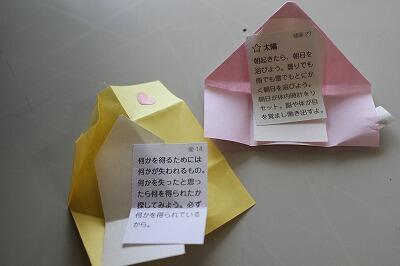 健康 27
☆ 太陽
朝起きたら、朝日を
浴びよう。曇りでも
雨でも雪でもとにか
く朝日を浴びよう。
朝日が体内時計をリ
セット。脳や体が目
を覚まし働き出すよ。
愛 14
何かを得るためには
何かが失われるもの。
何かを失ったと思っ
たら何を得られたか
探してみよう。必ず
何かを得られている
から。